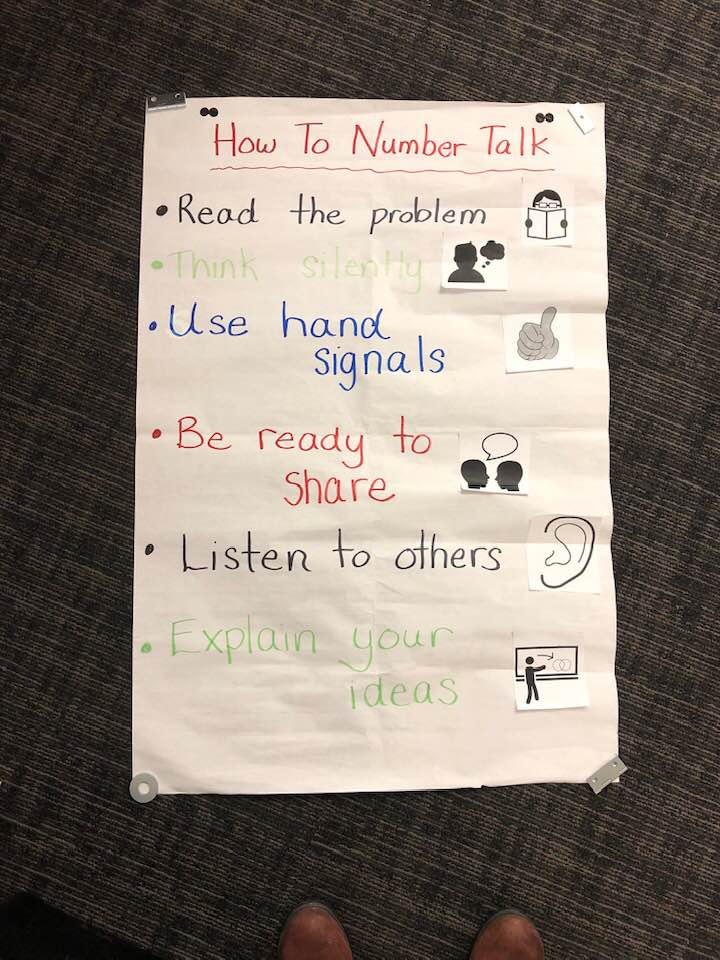 How To Number Talk
• Read the problem
• Think silently
• Use hand
signals
• Be ready to
share
• Listen to others
• Explain your
ideas